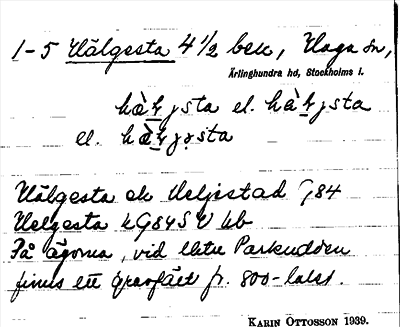 1-5 Hälgesta 4 1/2 ben, Haga sn,
Ärlinghundra hd, Stockholms l.
hä̀ɫjsta el. hà̀ɫjsta
el. hæ̀ɫjəsta
Hälgesta ell Heljestad G84
Helgesta kG84SU kb
På ägorna, vid Parkudden
finns ett gravfält fr. 800-talet.
KARIN OTTOSSON 1939.